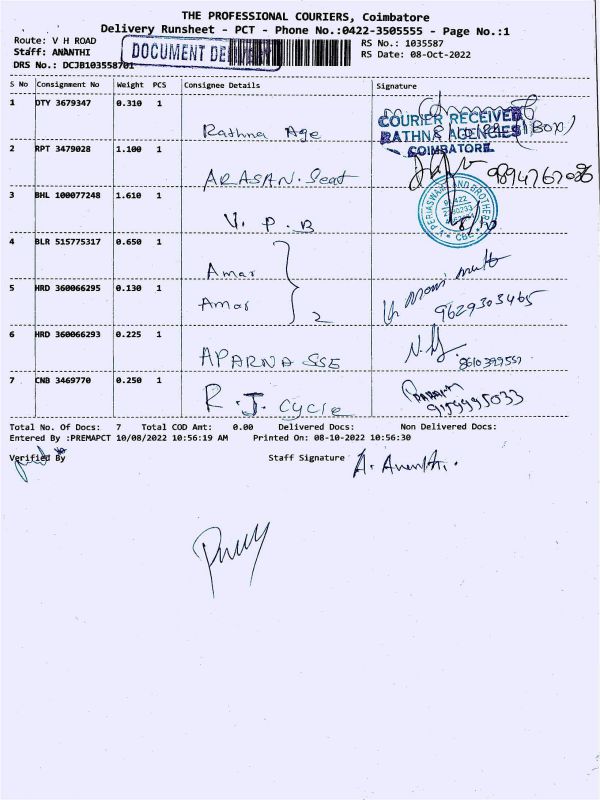 THE PROFESSIONAL COURIERS, Coimbatore
Delivery Runsheet - PCT - Phone No.:0422-3505555 - Page No.:1
Route: V H ROAD
RS No.: 1035587
Staff: ANANTHI
DOCUMENT DE
RS Date: 08-Oct-2022
DRS No.: DCJB103558701
S No Consignment No Weight PCS Consignee Details Signature
1 DTY 3679347 0.310 1
Rathna Age
COURIER RECEIVED
RATHNA AGENCIES
COIMBATORE
(1 BOX)
2 RPT 3479028 1.100 1
ARASAN. Seat
9894767086
3 BHL 100077248 1.610 1
V. P. B
PERIASWAMY AND BROTHERS
CBE
4 BLR 515775317 0.650 1
Amar
5 HRD 360066295 0.130 1
Amar
2
9629303465
6 HRD 360066293 0.225 1
APARNA SSE
8610399557
7 CNB 3469770 0.250 1
R. J. cycle
9159995033
Total No. Of Docs: 7 Total COD Amt: 0.00 Delivered Docs: Non Delivered Docs:
Entered By :PREMAPCT 10/08/2022 10:56:19 AM Printed On: 08-10-2022 10:56:30
Verified By
Staff Signature A. Ananthi.